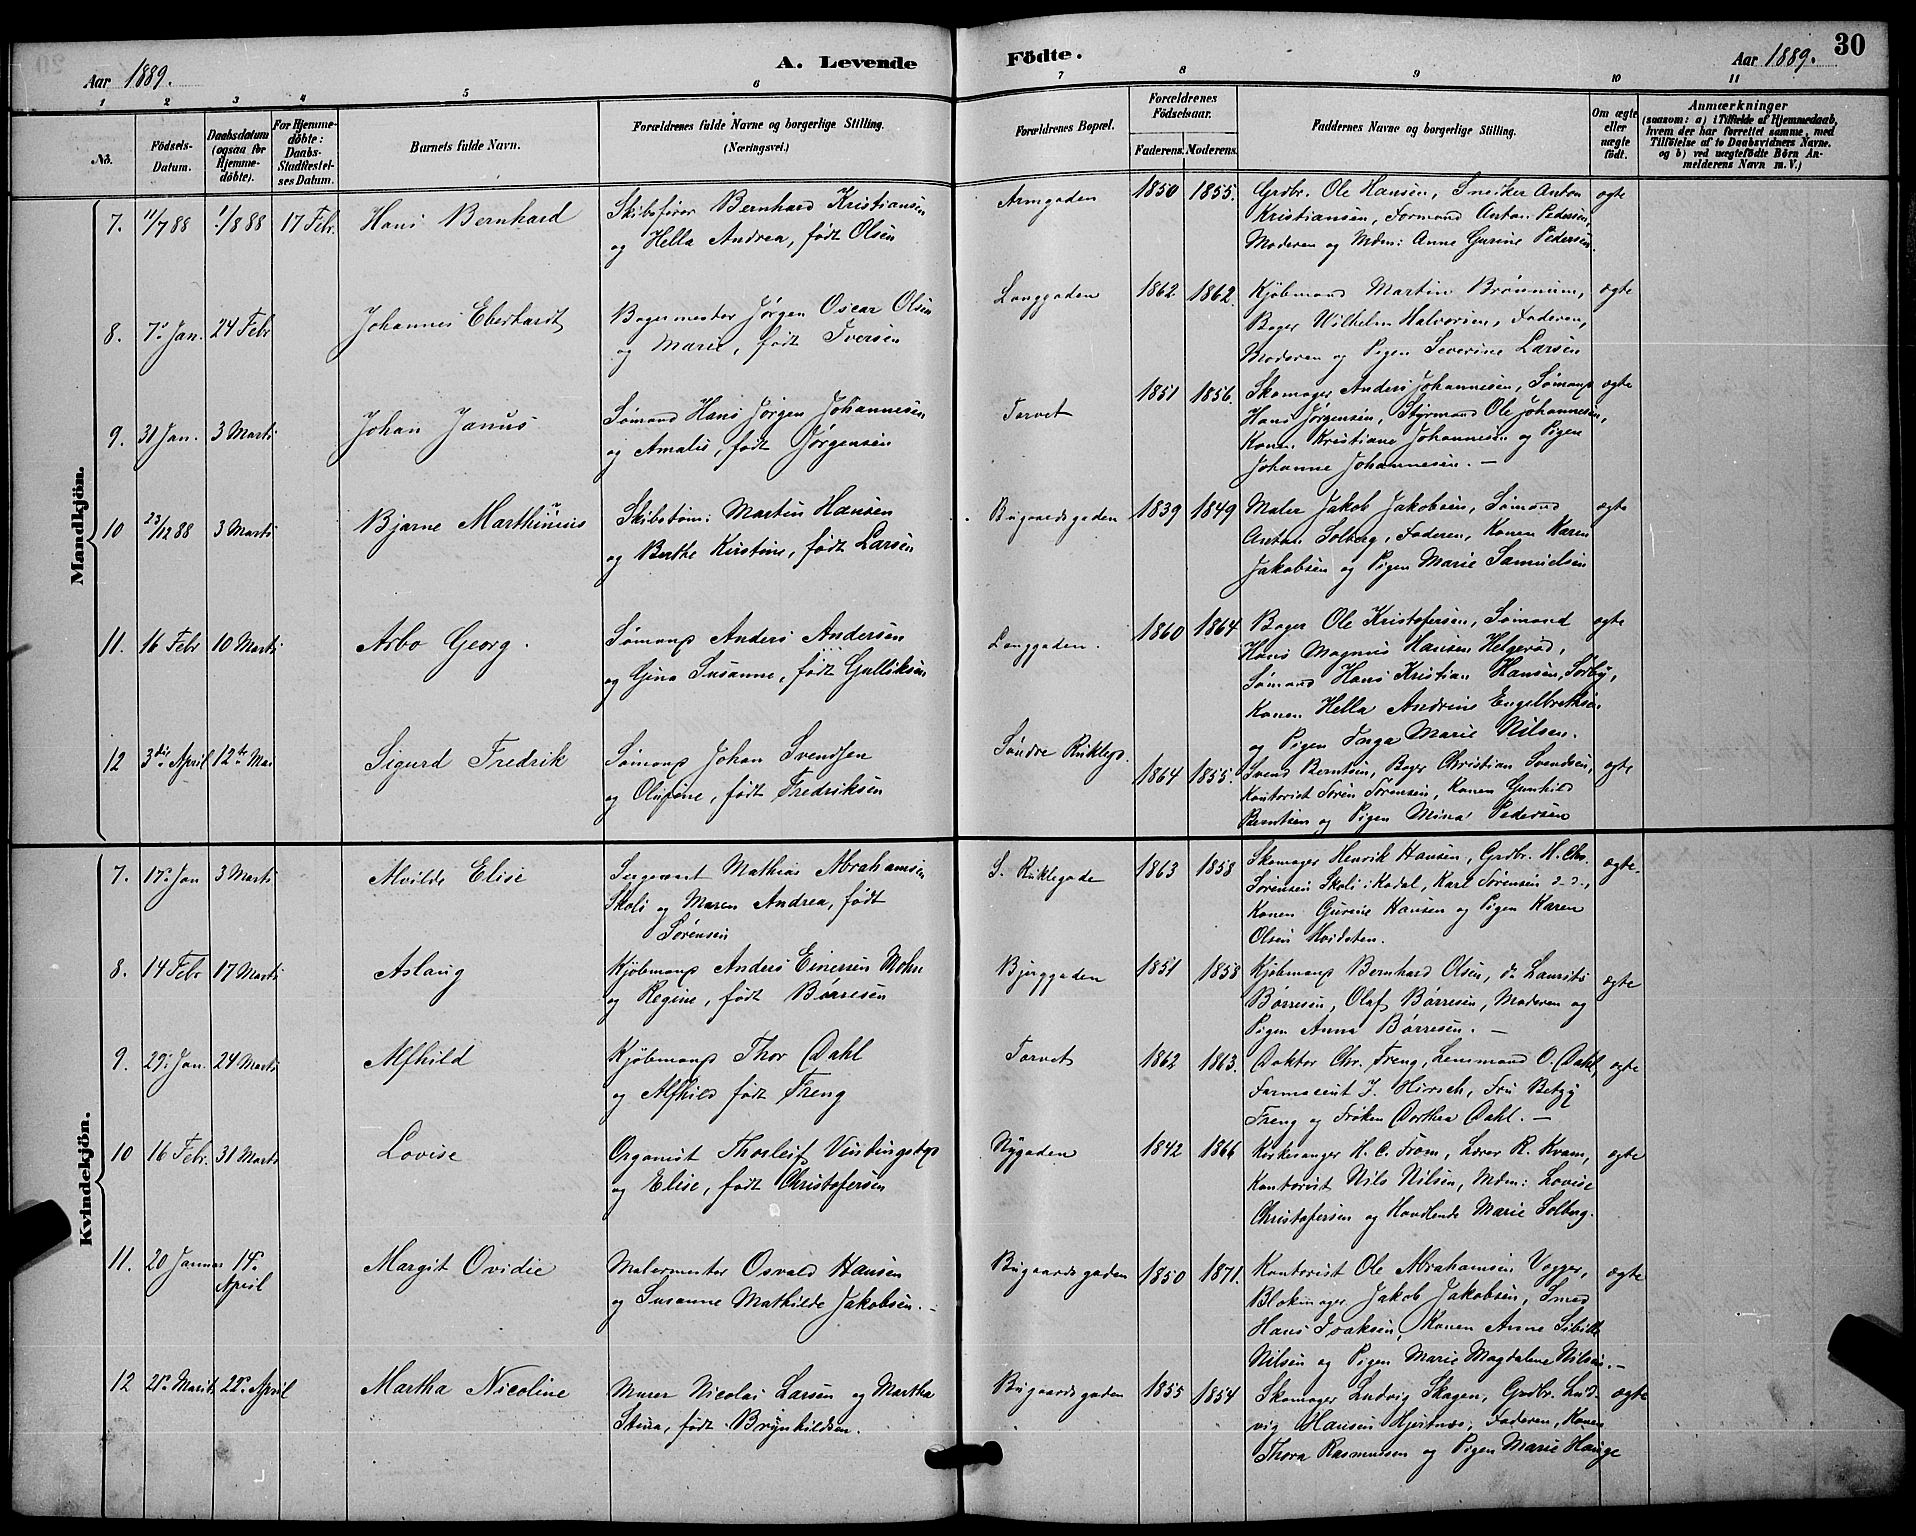 Aar 1889.
A. Levende
Födte.
Aar 1889.
30
1 2 3 4 5 6 7 8 9 10 11
No.
Födsels-
Datum.
Daabsdatum
(ogsaa for
Hjemme-
döbte).
For Hjemme-
döbte:
Daabs-
Stadfæstel-
ses Datum.
Barnets fulde Navn.
Forældrenes fulde Navne og borgerlige Stilling.
(Næringsvei.)
Forældrenes Bopæl.
Forældrenes
Födselsaar.
Faderens. Moderens.
Faddernes Navne og borgerlige Stilling.
Om ægte
eller
uægte
födt.
Anmærkninger
(saasom: a) i Tilfælde af Hjemmedaab,
hvem der har forrettet samme, med
Tilföielse af to Daabsvidners Navne.
og b) ved uægtefödte Börn An-
melderens Navn m. V.)
Mandkjön.
7. 11/7 88 1/8 88 17 Febr. Hans Bernhard
Skibsfører Bernhard Kristiansen
og Hella Andrea, født Olsen
Armgaden 1850 1855.
Grdbr. Ole Hansen, Snedker Anton
Kristiansen, Formand Anton Pedersen,
Moderen og Mdm: Anne Gurine Pedersen.
ægte
8. 7de Jan. 24 Febr Johannes Eberhardt
Bagermester Jørgen Oscar Olsen
og Marie, født Iversen
Langgaden 1862 1862.
Kjøbmand Martin Brønnum,
Bager Wilhelm Halvorsen, Faderen,
Moderen og Pigen Severine Larsen
ægte
9. 30 Jan. 3 Marts Johan Janus
Sømand Hans Jørgen Johannesen
og Amalie, født Jørgensen
Torvet 1851 1856.
Skomager Anders Johannesen, Sømand
Hans Jørgensen, Styrmand Ole Johannesen,
Konen Kristiane Johannesen og Pigen
Johanne Johannesen. —
ægte
10 23/12 88 3 Marts Bjarne Marthinius
Skibstøm: Martin Hansen
og Berthe Kirstine, født Larsen
Bugaardsgaden 1839 1849
Maler Jakob Jakobsen, Sømand
Anton Solberg, Faderen, Konen Karen
Jakobsen og Pigen Marie Samuelsen
ægte
11. 16 Febr 10 Marts Arbo Georg.
Sømand Anders Andersen
og Gina Susanne, født Gulliksen
Langgaden. 1860 1864
Bager Ole Kristofersen, Sømand
Hans Magnus Hansen Helgerød,
Sømand Hans Kristian Hansen, Sørby,
Konen Hella Andrine Engelbrethsen
og Pigen Inga Marie Nilsen.
ægte
12 3die April 12te Mai Sigurd Fredrik
Sømand Johan Svendsen
og Olufine, født Fredriksen
Søndre Rukleg. 1864 1855.
Svend Berntsen, Bager Christian Svendsen,
Kontorist Søren Sørensen, Konen Gunhild
Berntsen og Pigen Mina Pedersen
ægte
Kvindekjön.
7. 17de Jan 3 Marts Alvilde Elise
Sergeant Mathias Abrahamsen
Skoli og Maren Andrea, født
Sørensen
S. Ruklegade 1863 1858
Skomager Henrik Hansen, Grdbr. H. Chr.
Sørensen Skoli i Kodal, Karl Sørensen d. d.,
Konen Gurine Hansen og Pigen Karen
Olsen Hvidsten.
ægte.
8. 14 Febr 17 Marts Aslaug
Kjøbmand Anders Einersen Mohn
og Regine, født Børresen
Bjerggaden 1851 1858
Kjøbmand Bernhard Olsen, do Laurits
Børresen, Olaf Børresen, Moderen og
Pigen Anna Børresen. —
ægte
9. 29. Jan. 24 Marts Alfhild
Kjøbmand Thor Dahl
og Alfhild født Freng
Torvet 1862 1863.
Doktor Chr. Freng, Lensmand O. Dahl,
Farmaceut J. Hirsch, Fru Betzy
Freng og Frøken Dorthea Dahl. —
ægte
10 16 Febr. 31 Marts Lovise
Organist Thorleif
og Elise, født Christofersen
Nygaden 1842 1866
Kirkesanger H. C. From, Lærer R. Kvam,
Kontorist Nils Nilsen, Mdm: Lovise
Christofersen og Handlende Marie Solberg.
ægte
11. 20 Januar 14de
April
Margit Ovidie
Malermester Osvald Hansen
og Susanne Mathilde Jakobsen. —
Bugaardsgaden 1850 1871.
Kontorist Ole Abrahamsen Vegger,
Blokmager Jakob Jakobsen, Smed
Hans Isaksen, Konen Anne Sibille
Nilsen og Pigen Marie Magdalene Nilsen. —
ægte
12 21de Marts 22de April Martha Nicoline
Murer Nicolai Larsen og Martha
Stina, født Brynhildsen.
Bugaardsgaden 1855 1854
Skomager Ludvig Skagen, Grdbr. Lud-
vig Hansen Hjertnæs, Faderen, Konen
Thora Rasmussen og Pigen Marie Hauge
ægte